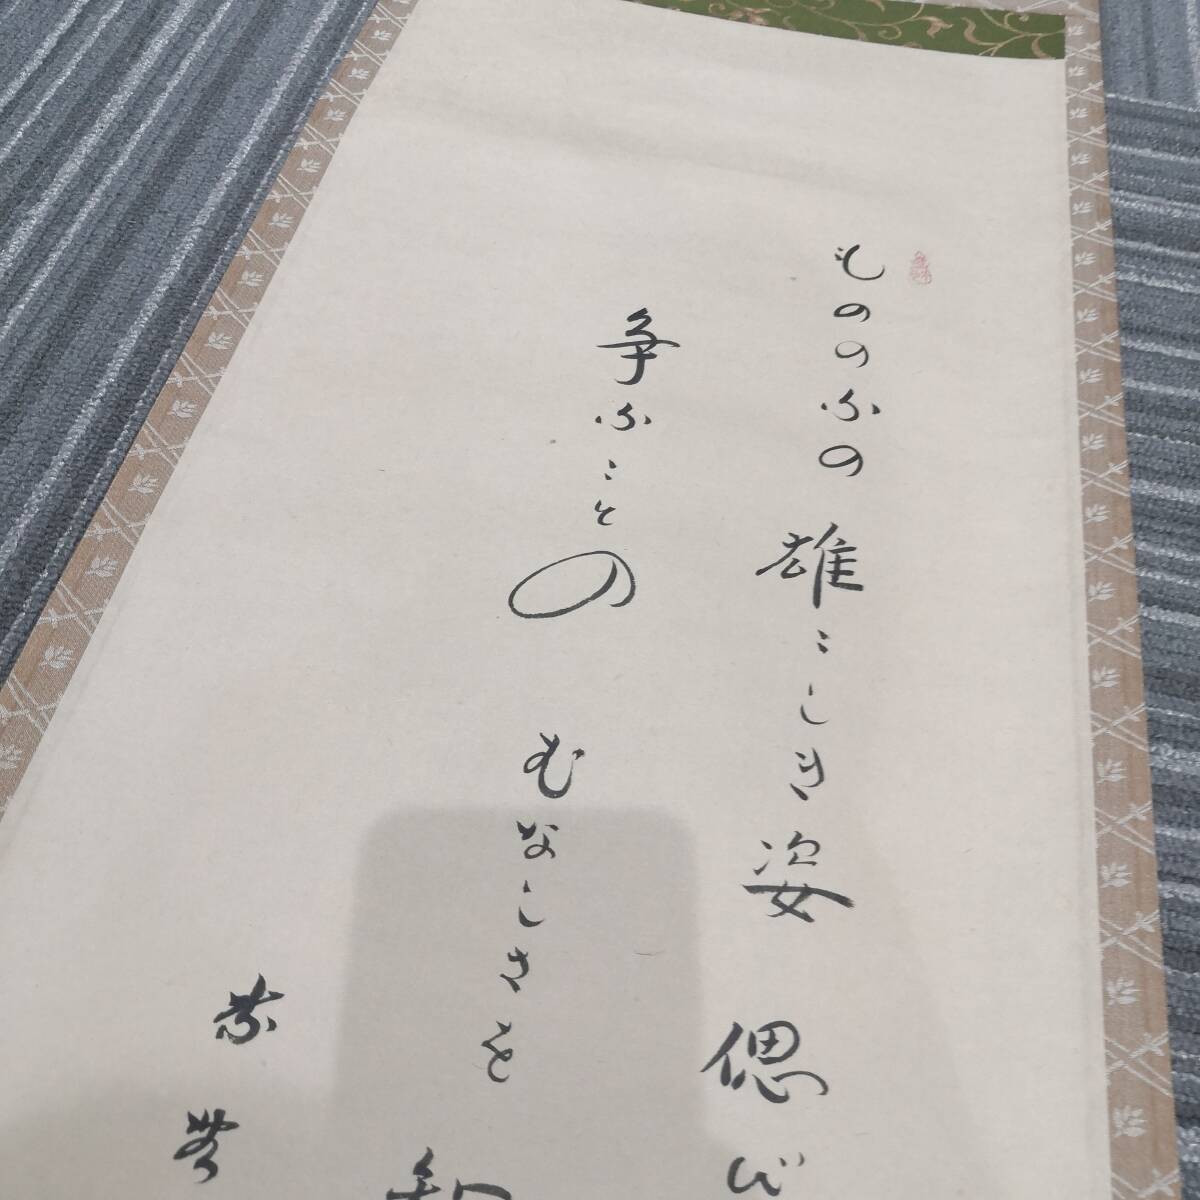 もののふの雄こしき姿偲び
争ふことのむなしさを